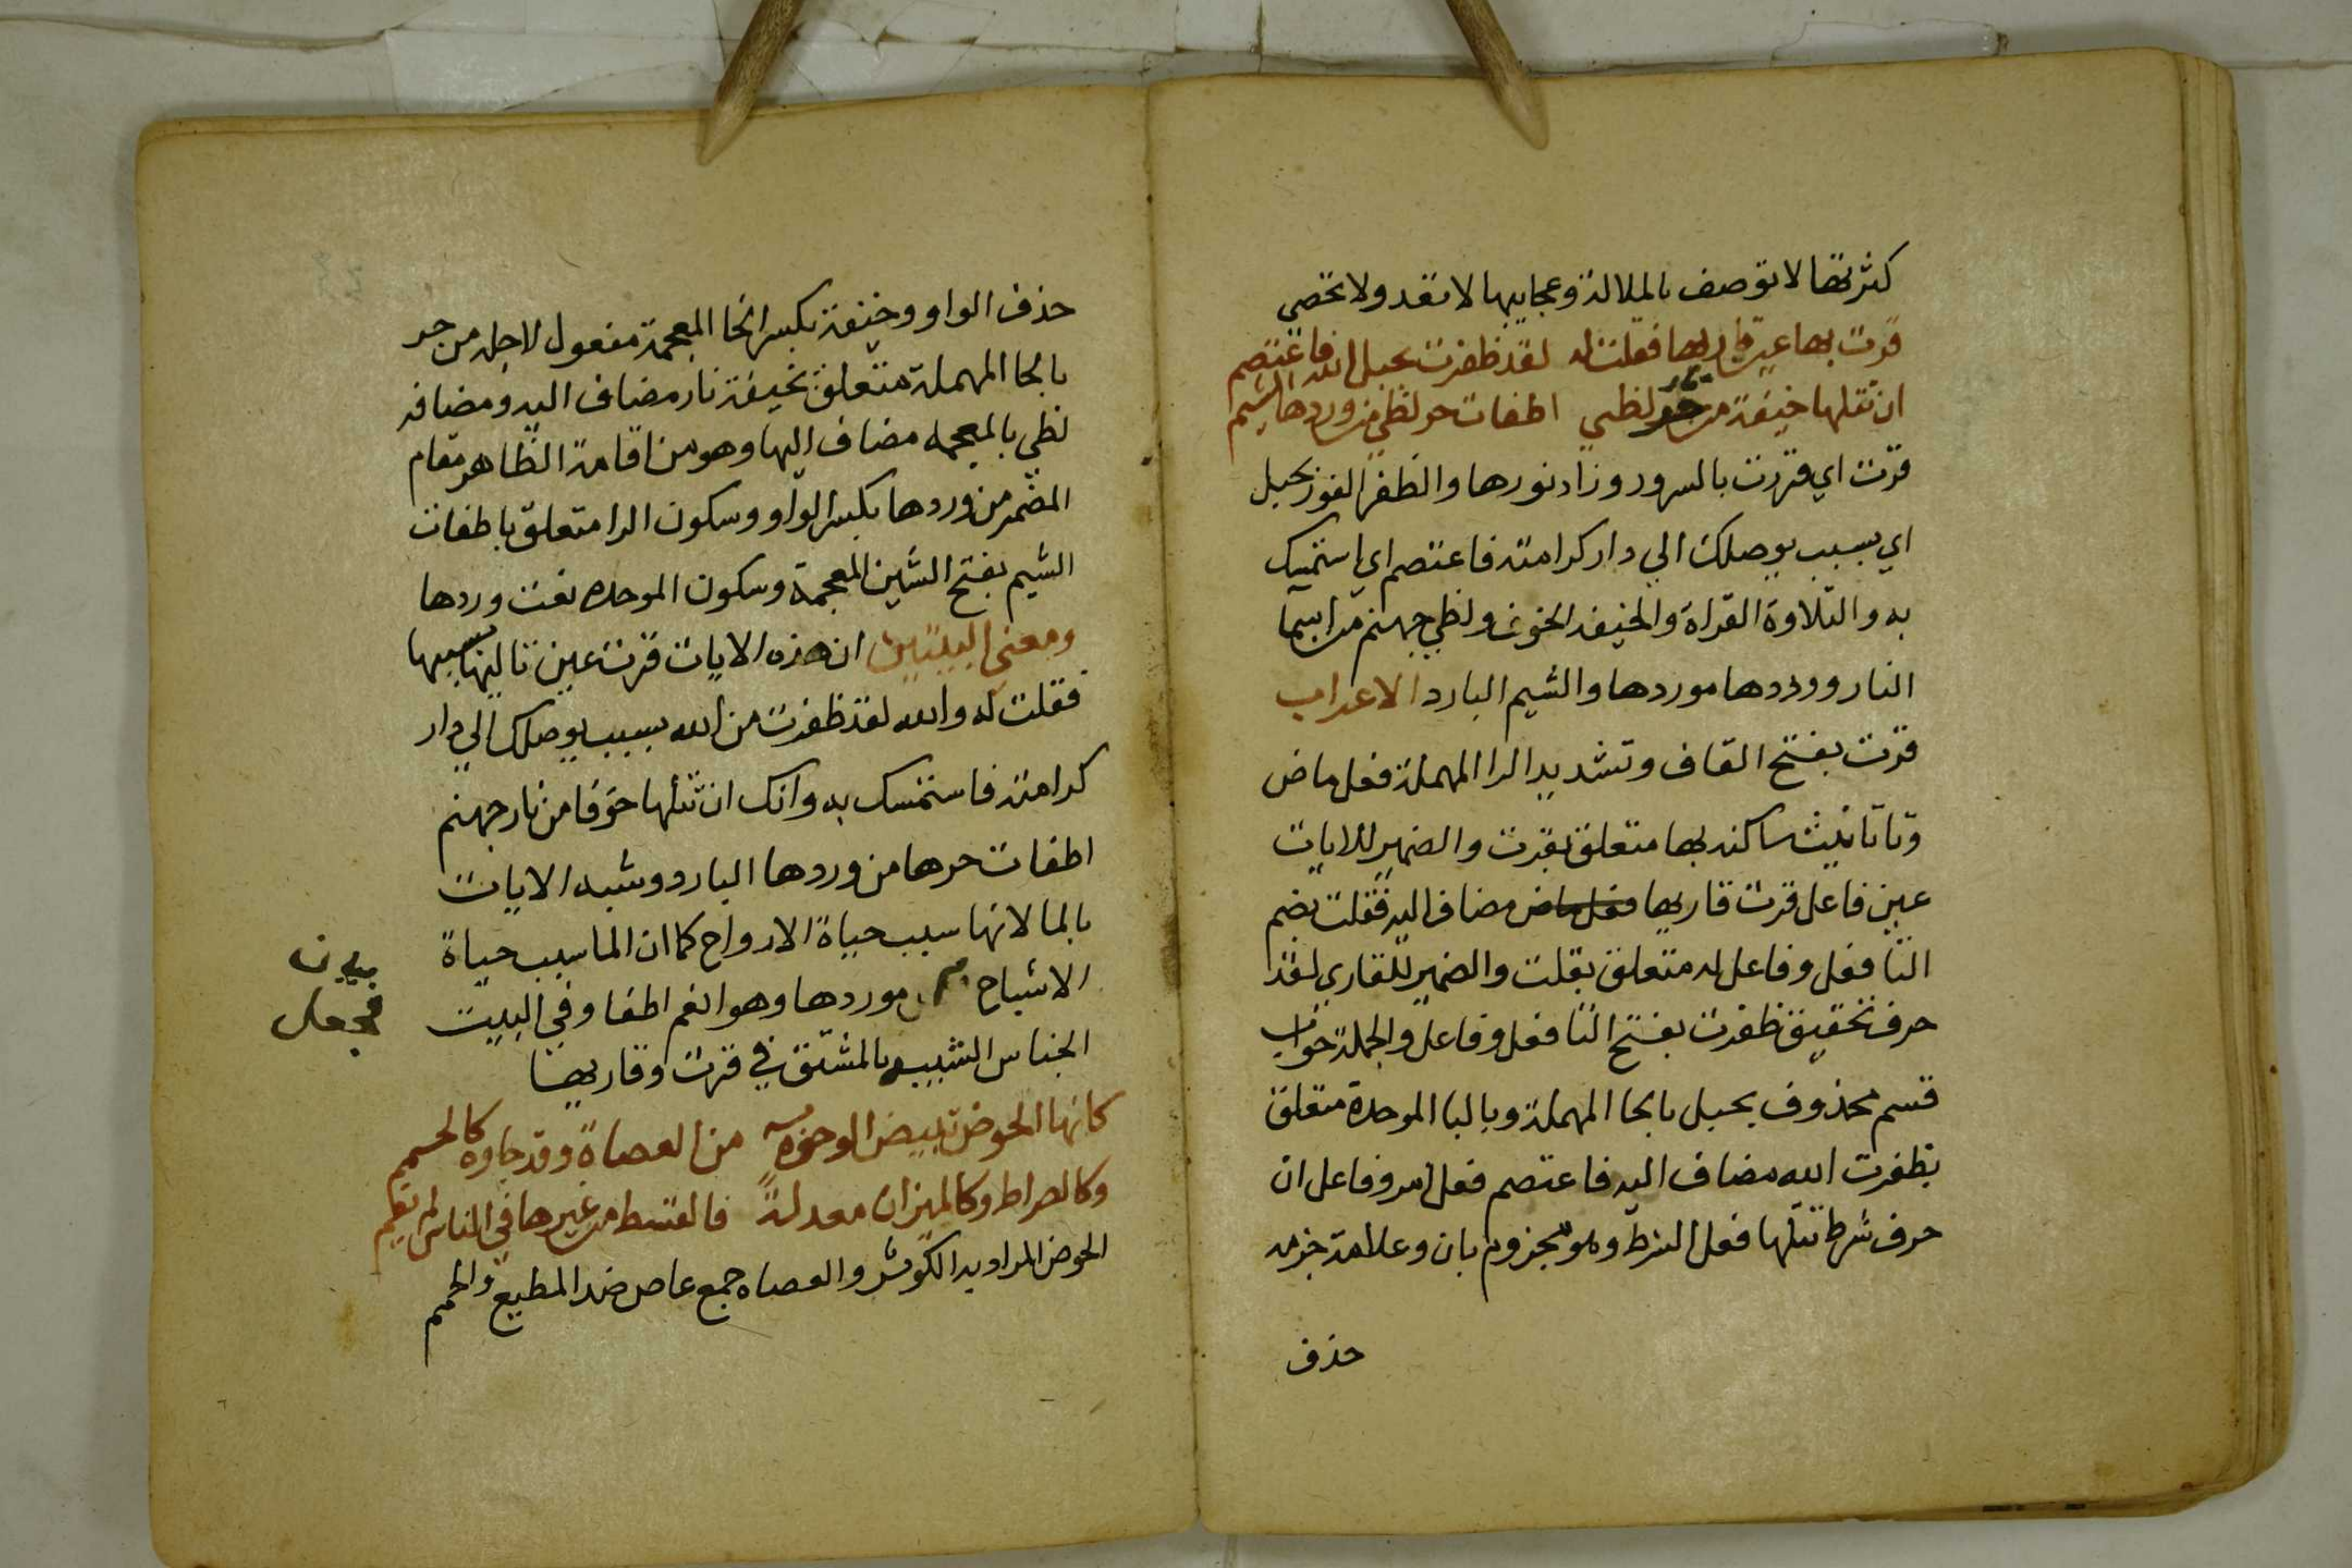 كثرتها لا توصف بالملالة وعجايبها لا تعد ولا تحصي
قرت بها عين قاريها فقلت له لقد ظفرت بحبل الله فاعتصم
ان تتلها خيفة من حر نار لظي اطفات حر لظي من وردها الشيم
قرت اي قررت بالسرور وزاد نورها والظفر الفوز بحبل
اي بسبب يوصلك الي دار كرامته فاعتصم اي استمسك
به والتلاوة القراة والخيفة الخوف ولظي جهنم من اسما
النار ووردها موردها والشيم البارد الاعراب
قرت بفتح القاف وتشديد الرا المهملة فعل ماض
وتا تانيث ساكنه بها متعلق بقرت والضمير للايات
عين فاعل قرت قاريها فعل ماض مضاف اليه فقلت بضم
التا فعل وفاعل له متعلق بقلت والضمير للقاري لقد
حرف تحقيق ظفرت بفتح التا فعل وفاعل والجملة جواب
قسم محذوف بحبل بالحا المهملة وبالبا الموحدة متعلق
بظفرت الله مضاف اليه فاعتصم فعل امر وفاعل ان
حرف شرط تتلها فعل الشرط وهو مجزوم بان وعلامة جزمه
حذف
حذف الواو وخيفة بكسر الخا المعجمة مفعول لاجله من حر
بالحا المهملة متعلق بخيفة نار مضاف اليه ومضافه
لظي بالمعجمه مضاف اليها وهو من اقامة الظاهر مقام
المضمر من وردها بكسر الواو وسكون الرا متعلق باطفات
الشيم بفتح الشين المعجمة وسكون الموحده نعت وردها
ومعني البيتين ان هذه الايات قرت عين تاليها بسببها
فقلت له والله لقد ظفرت من الله بسبب يوصلك الي دار
كرامته فاستمسك به وانك ان تتلها خوفا من نار جهنم
اطفات حرها من وردها البارد وشبه الايات
بالما لانها سبب حياة الارواح كما ان الما سبب حياة
الاشباح موردها وهو الفم اطفا وفي البيت
الجناس الشبيه بالمشتق في قرت وقاريها
كانها الحوض تبيض الوجوه به من العصاة وقد جاوه كالحمم
وكالصراط وكالميزان معدلة فالقسط من غيرها في الناس لم يقم
الحوض المراد به الكوثر والعصاه جمع عاص ضد المطيع والحمم
فجعل